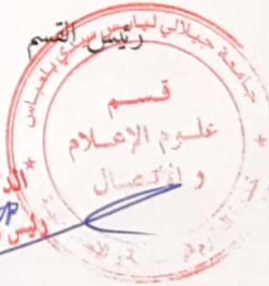 رئيس القسم
جامعة جيلالي ليابس سيدي بلعباس
قسم
علوم الإعلام
و الاتصال
رئيس